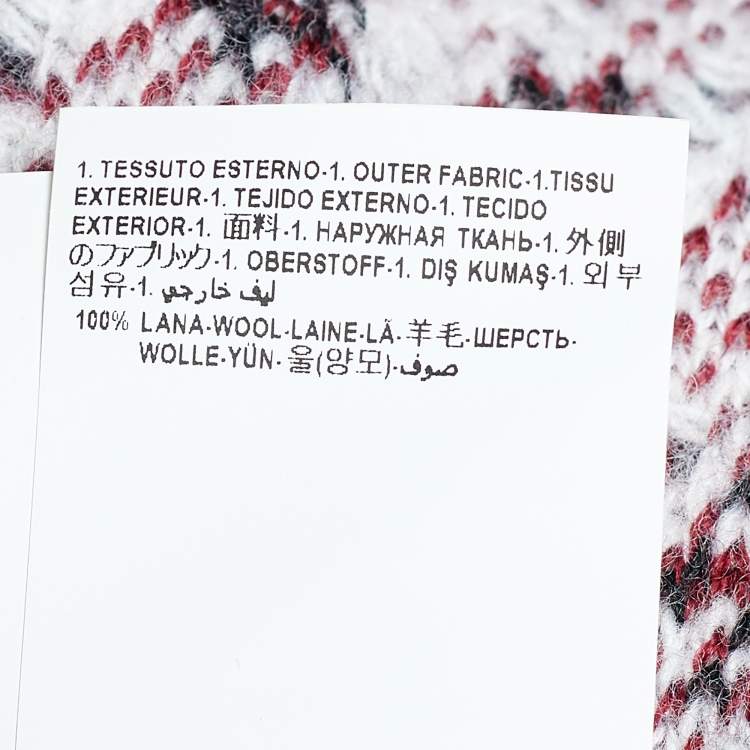 1. TESSUTO ESTERNO-1. OUTER FABRIC-1.TISSU
EXTERIEUR-1. TEJIDO EXTERNO-1. TECIDO
EXTERIOR-1. 面料-1. НАРУЖНАЯ ТКАНЬ-1. 外側
のファブリック-1. OBERSTOFF-1. DIŞ KUMAŞ-1. 외부
섬유-1. ليف خارجي
100% LANA-WOOL-LAINE-LÃ-羊毛-ШЕРСТЬ-
WOLLE-YÜN- 울(양모)-صوف